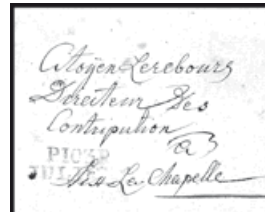 Citoyen Lerebours
Directeur Des
Contripution
a
Aix La Chapelle